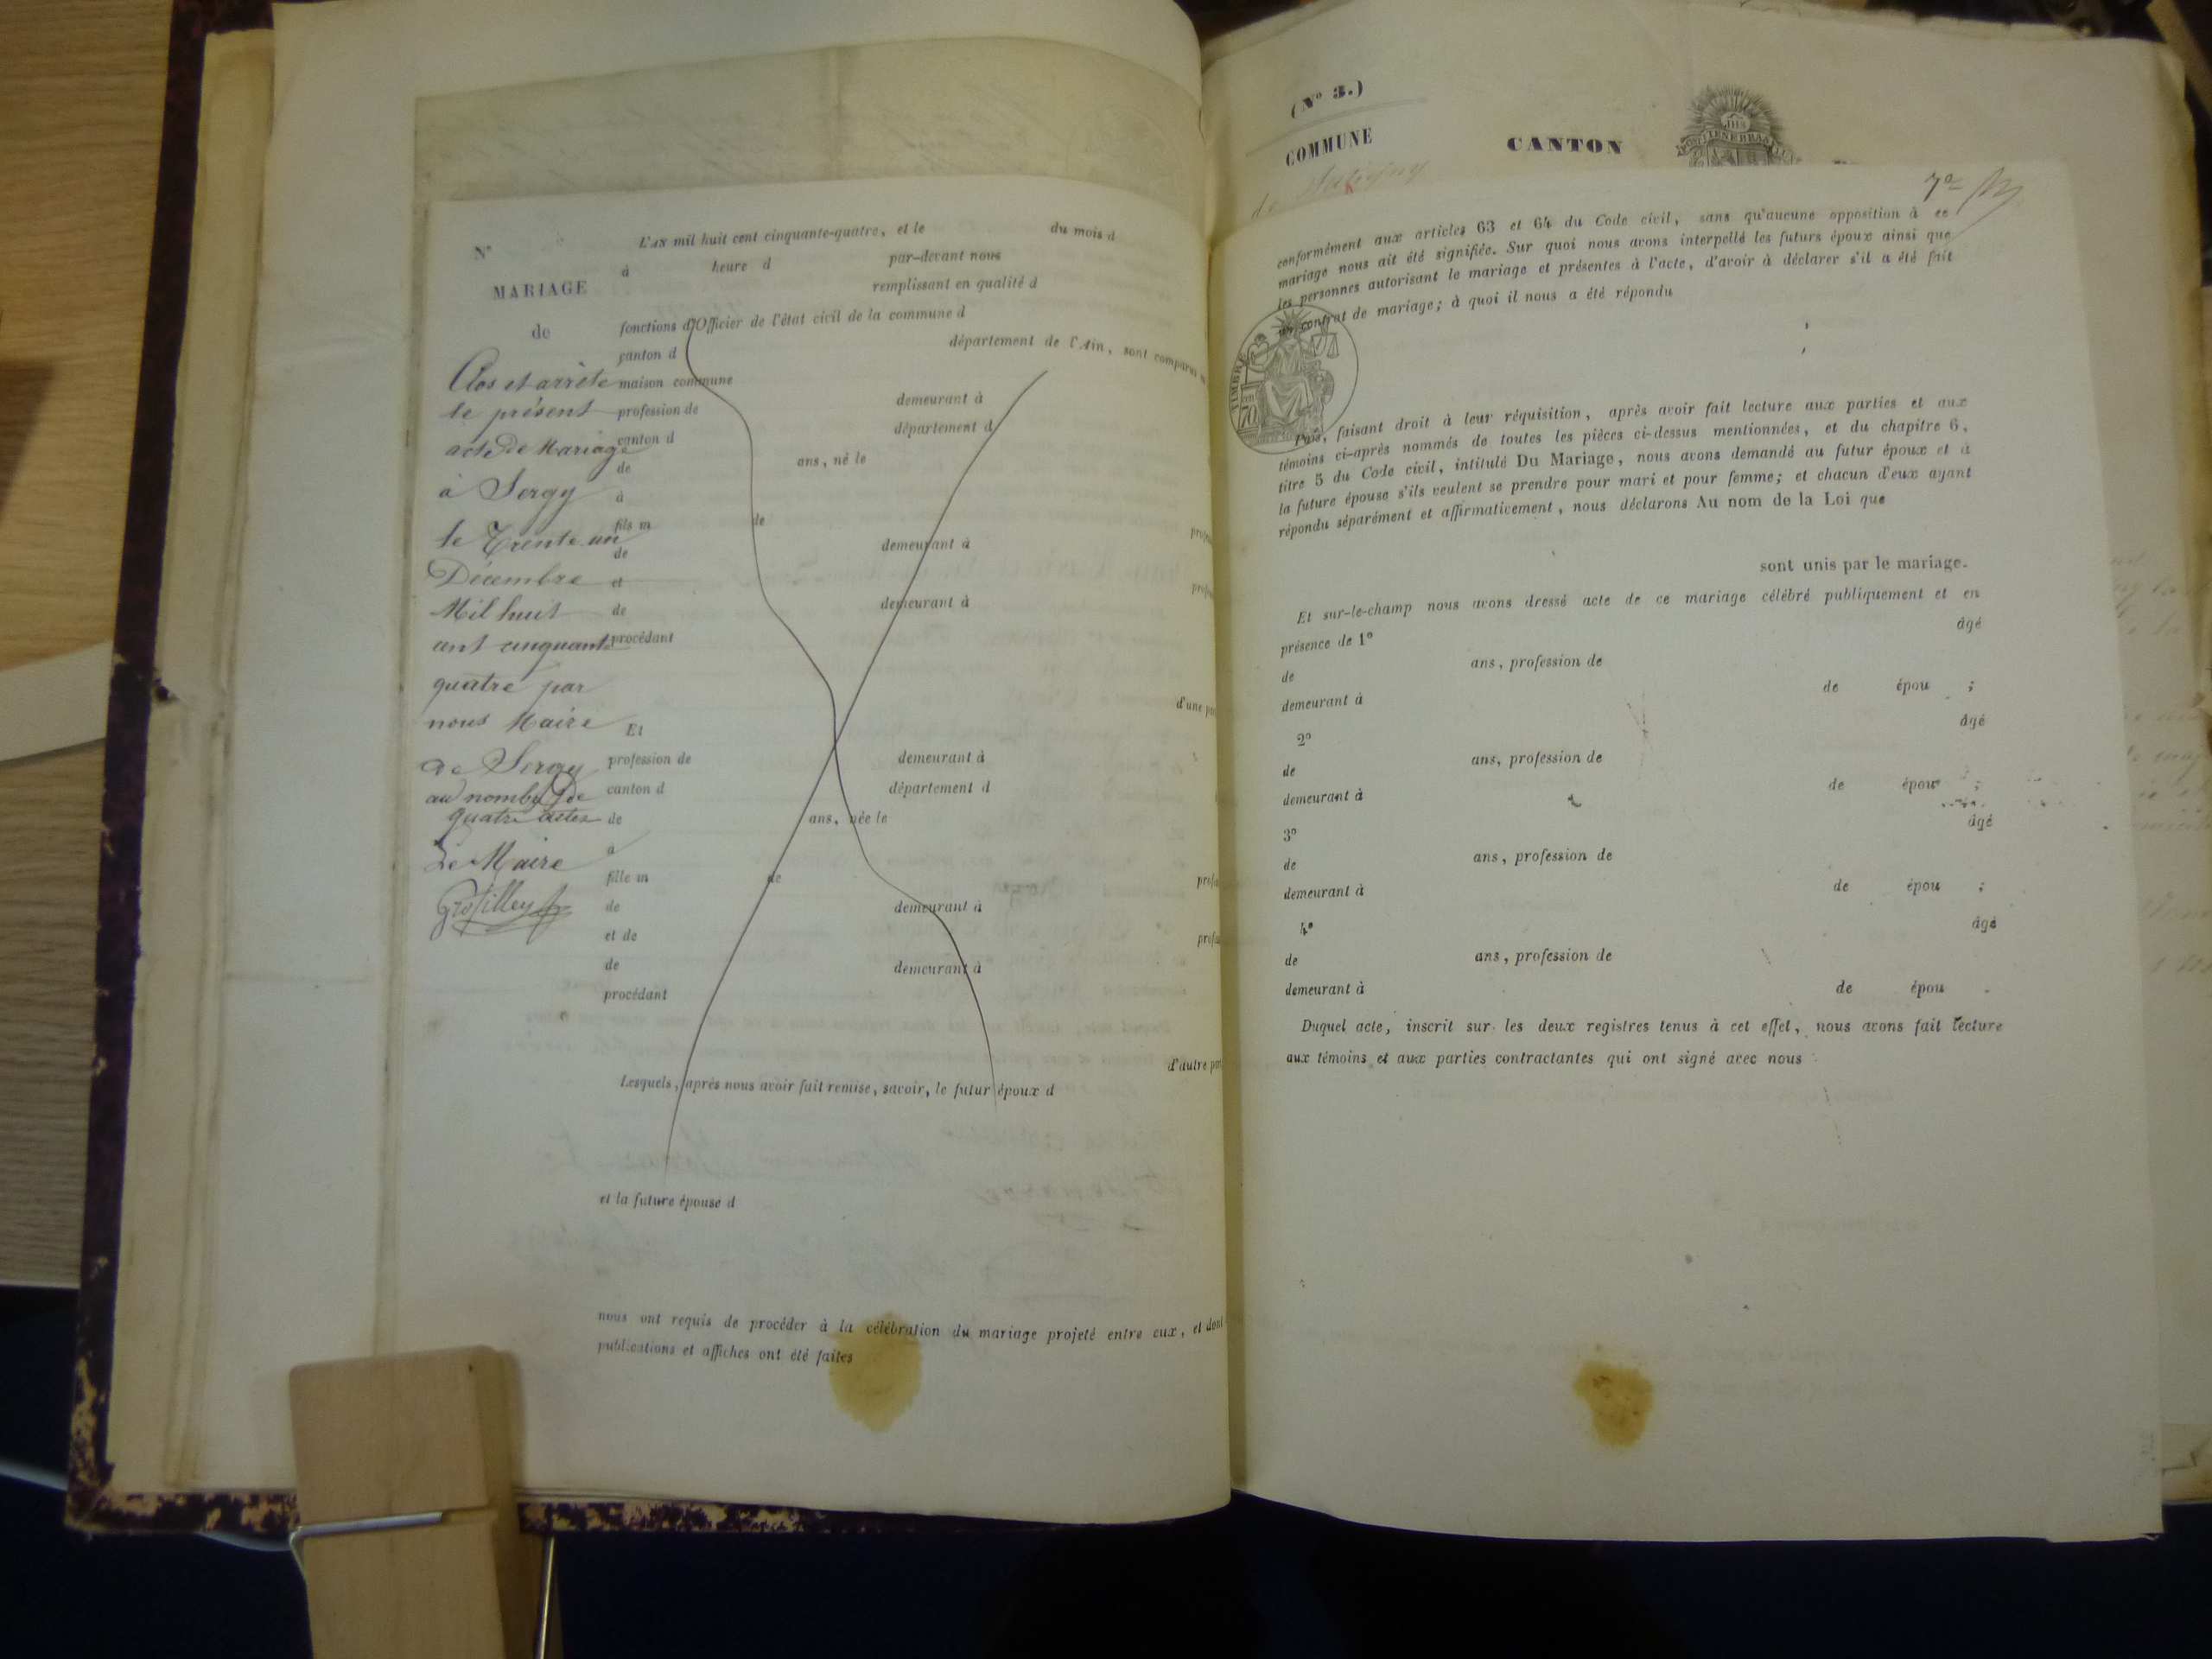 N°
MARIAGE
de
Clos et arrêté
le présent
acte de Mariage
à Sergy
le Trente un
Décembre
Mil huit
cent cinquante
quatre par
nous Maire
de Sergy
au nombre de
quatre actes
Le Maire
L'AN mil huit cent cinquante-quatre, et le du mois d
à heure d par-devant nous
remplissant en qualité d
fonctions d'Officier de l'état civil de la commune d
canton d département de l'Ain, sont comparus
maison commune
profession de demeurant à
canton d département d
de ans, né le
à
fils m de
de demeurant à
et
de demeurant à
procédant
d'une
Et
profession de demeurant à
canton d département d
de ans, née le
à
fille m de
de demeurant à
et de
de demeurant à
procédant
d'autre
Lesquels, après nous avoir fait remise, savoir, le futur époux d
et la future épouse d
nous ont requis de procéder à la célébration du mariage projeté entre eux, et dont
publications et affiches ont été faites
(N° 3.)
COMMUNE CANTON
de
POST TENEBRAS
7e
conformément aux articles 63 et 64 du Code civil, sans qu'aucune opposition à ce
mariage nous ait été signifiée. Sur quoi nous avons interpellé les futurs époux ainsi que
les personnes autorisant le mariage et présentes à l'acte, d'avoir à déclarer s'il a été fait
un contrat de mariage; à quoi il nous a été répondu
TIMBRE
70
Puis, faisant droit à leur réquisition, après avoir fait lecture aux parties et aux
témoins ci-après nommés de toutes les pièces ci-dessus mentionnées, et du chapitre 6,
titre 5 du Code civil, intitulé Du Mariage, nous avons demandé au futur époux et à
la future épouse s'ils veulent se prendre pour mari et pour femme; et chacun d'eux ayant
répondu séparément et affirmativement, nous déclarons Au nom de la Loi que
sont unis par le mariage.
Et sur-le-champ nous avons dressé acte de ce mariage célébré publiquement et en
présence de 1° âgé
de ans, profession de
demeurant à de épou ;
2° âgé
de ans, profession de
demeurant à de épou ;
3° âgé
de ans, profession de
demeurant à de épou ;
4° âgé
de ans, profession de
demeurant à de épou .
Duquel acte, inscrit sur les deux registres tenus à cet effet, nous avons fait lecture
aux témoins et aux parties contractantes qui ont signé avec nous